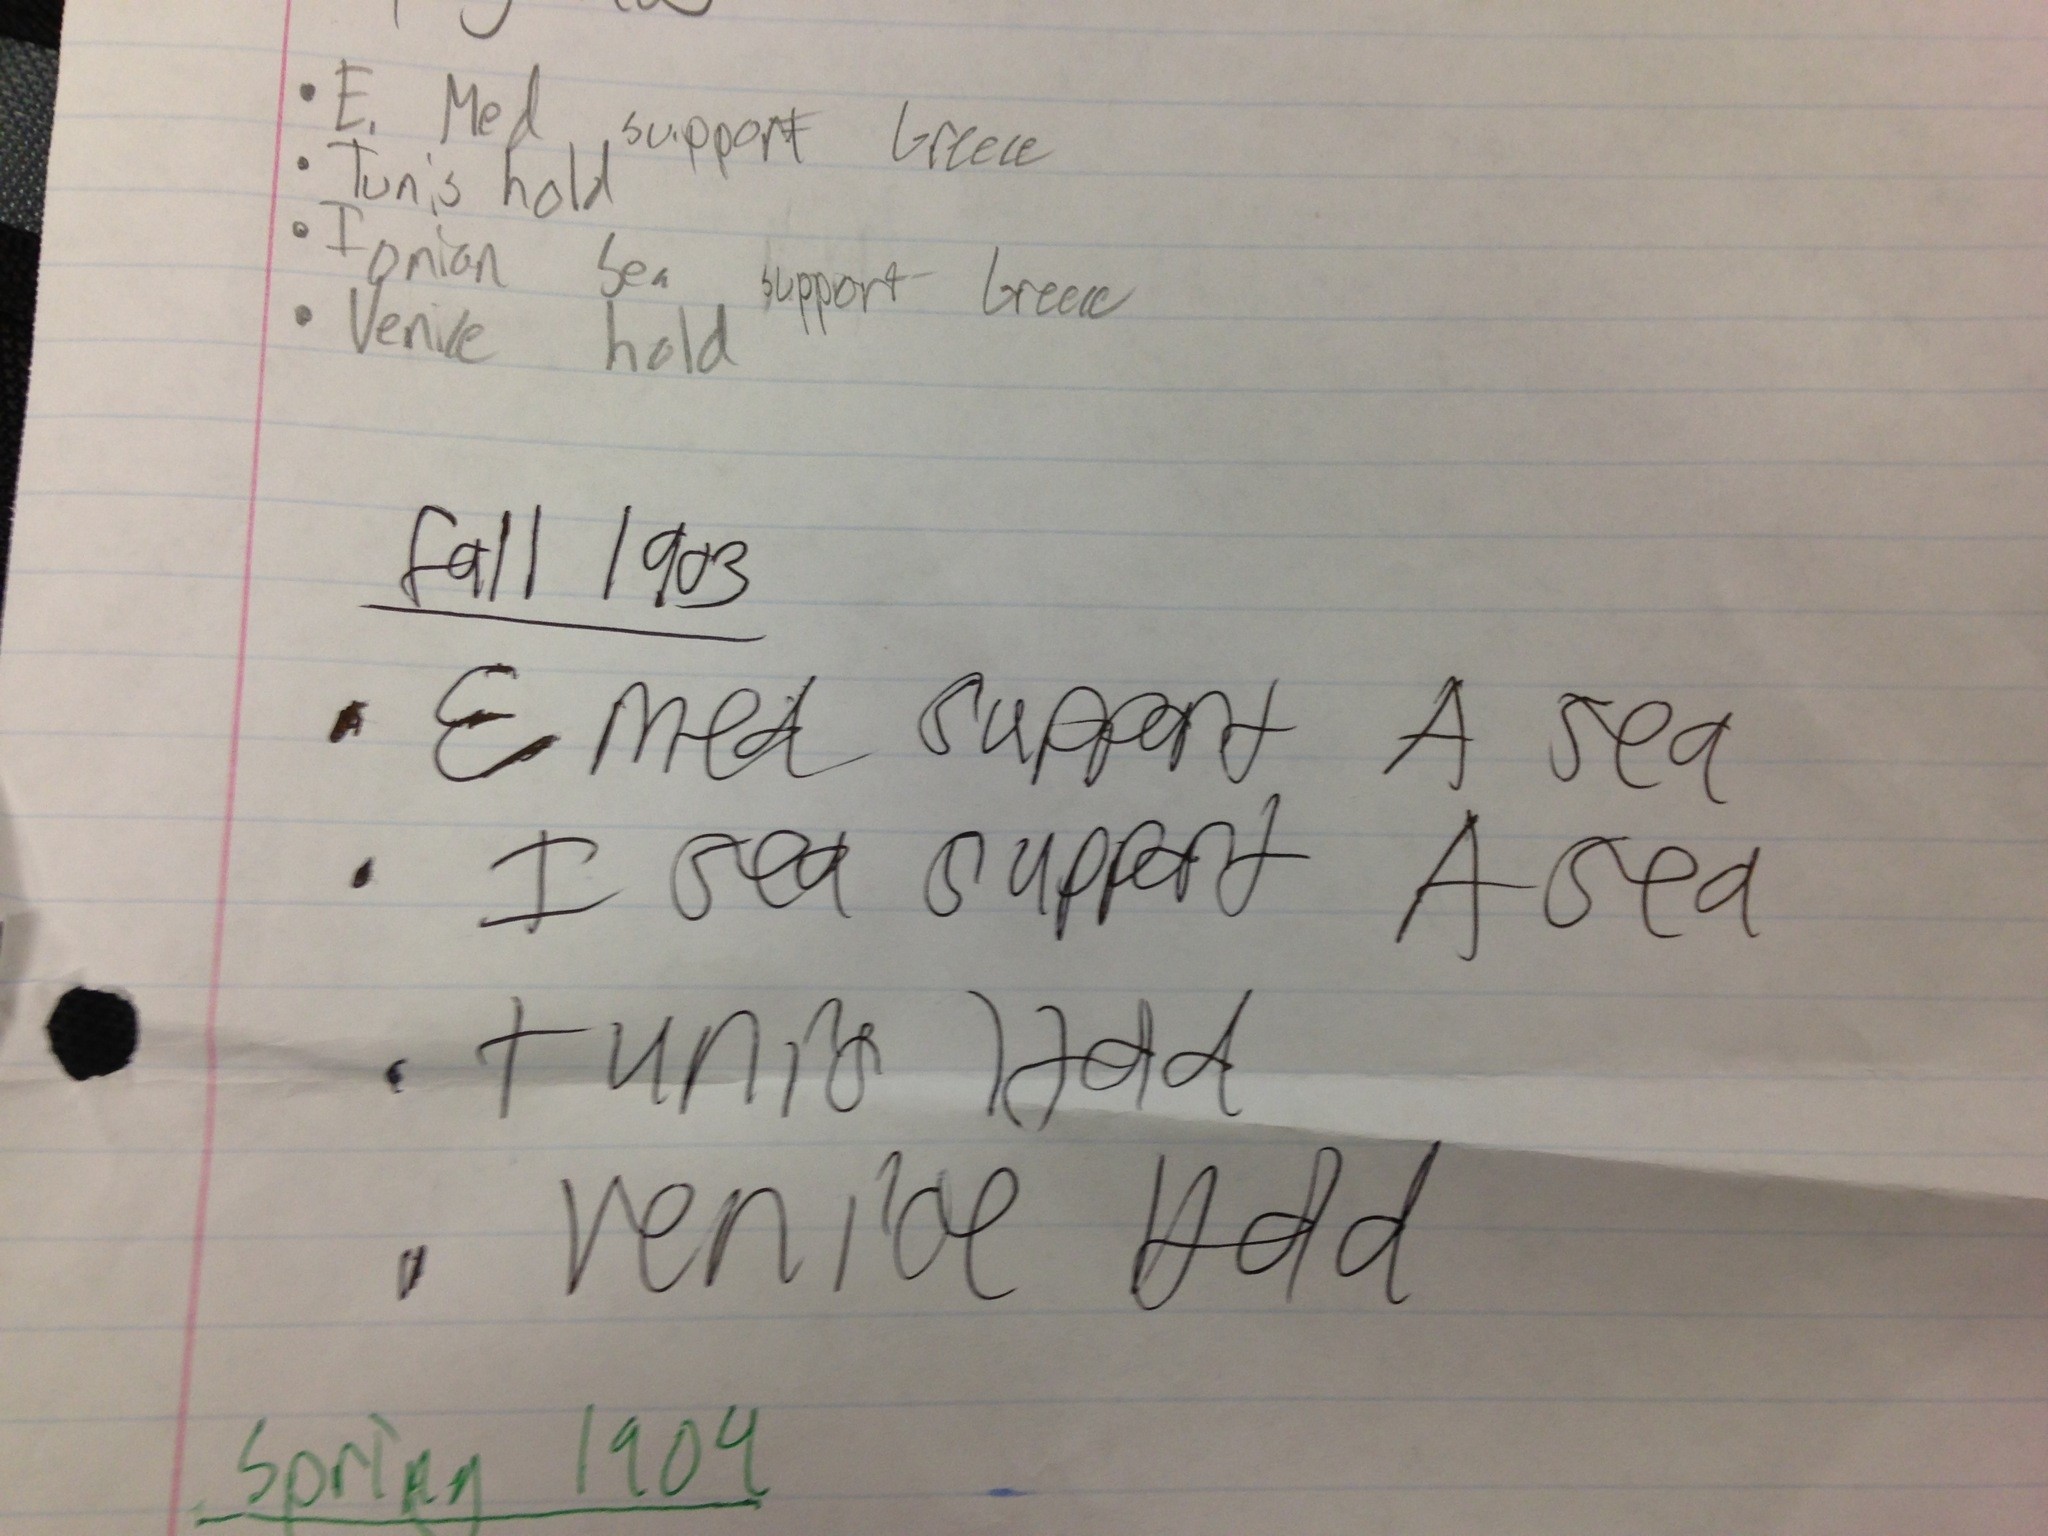 • E. Med support Greece
• Tunis hold
• Ionian Sea support Greece
• Venice hold
fall 1903
• E med support A sea
• I sea support A sea
• tunis Hold
• venice Hold
Spring 1904